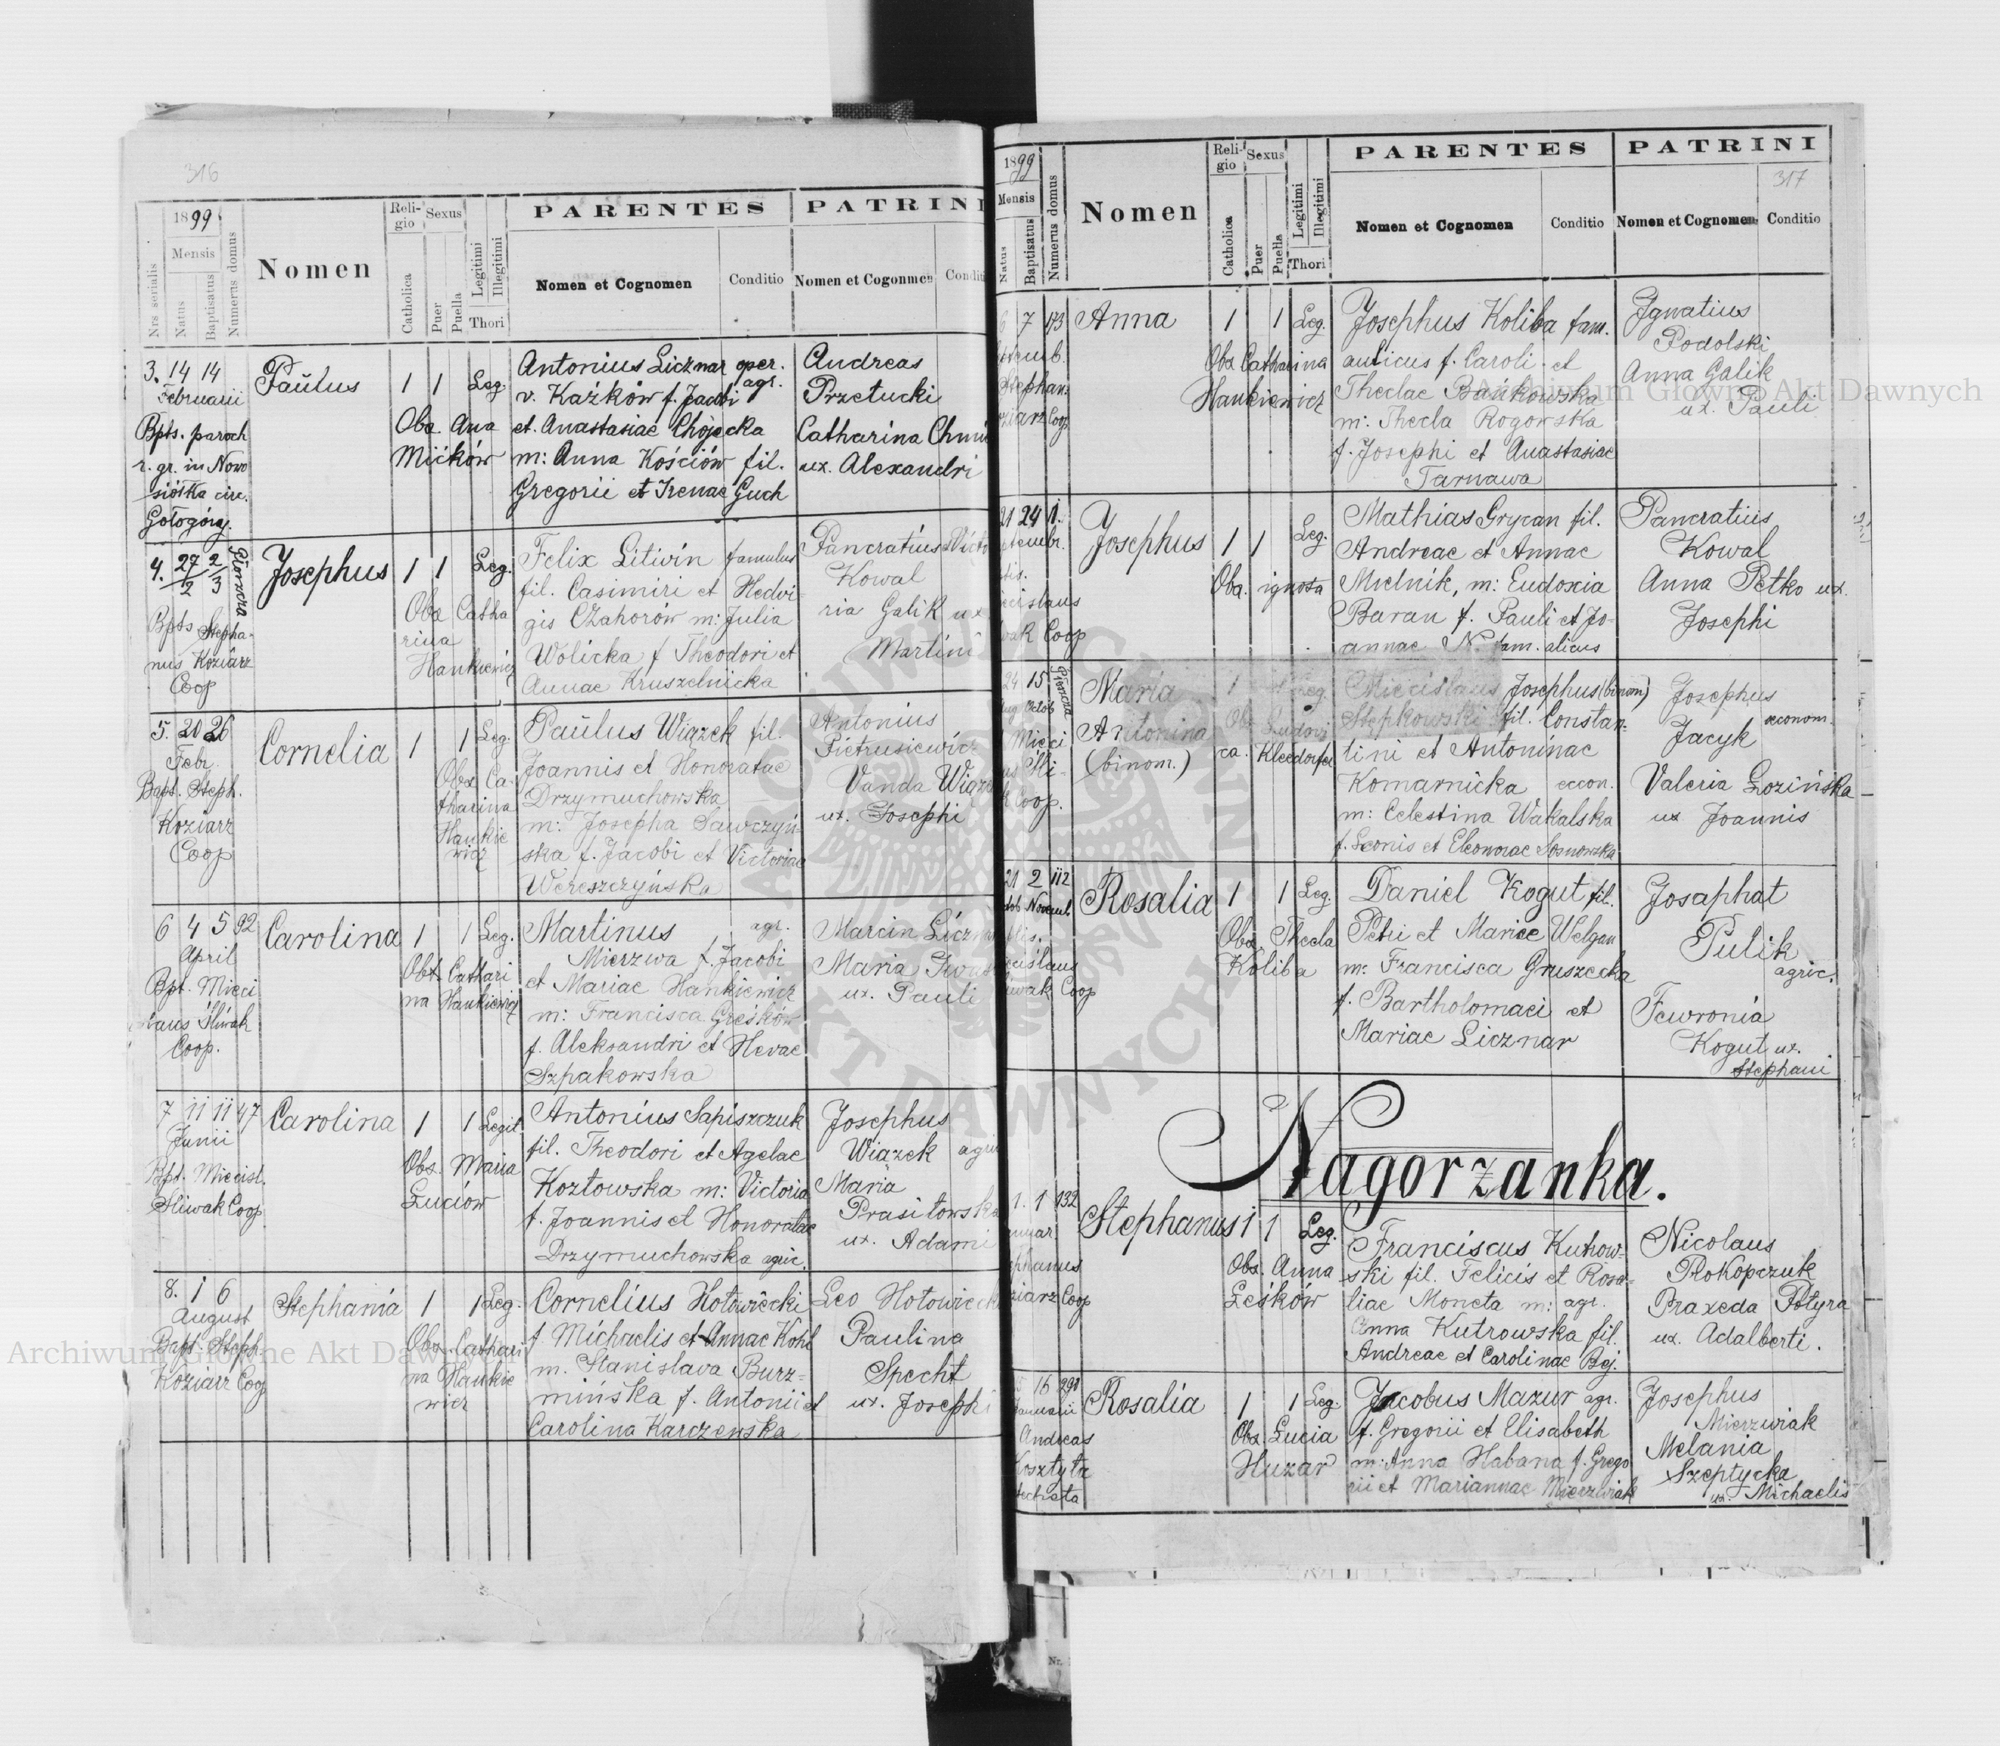 316
1899
Mensis
Nrs serialis
Natus
Baptisatus
Numerus domus
Nomen
Religio
Sexus
Catholica
Puer
Puella
Legitimi
Illegitimi
Thori
PARENTES
PATRINI
Nomen et Cognomen
Conditio
Nomen et Cogonmen
Conditi
3. 14 14
Februarii
Bpts. paroch
r. gr. in Nowo
siółka circ.
Gołogóry.
Paulus
1 1 Leg
Obs. Ana
Mićków
Antonius Licznar oper.
agr.
v. Kaźków f. Jacobi
et. Anastasiae Chójecka
m: Anna Kościów fil.
Gregorii et Irenae Guch
Andreas
Przetucki
Catharina
ux. Alexandri
4. 27/2 2/3
Bpts Stepha-
nus Koziarz
Coop
Josephus
1 1 Leg.
Obs Catha
rina
Hankiewicz
Felix Litwin famulus
fil. Casimiri et Hedvi-
gis Czahorów m: Julia
Wolicka f Theodori et
Annae Kruszelnicka
Pancratius
Kowal
ria Galik ux
Martini
5. 20 26
Febr.
Bapt. Steph.
Koziarz
Coop
Cornelia
1 1 Leg.
Obs Ca-
tharina
Hankie
wicz
Paulus Wiązek fil.
Joannis et Honoratae
Drzymuchowska
m: Josepha Sawczyń-
ska f. Jacobi et Victoriae
Wereszczyńska
Antonius
Pietrusiewicz
Vanda
ux. Josephi
6 4 5 92
April
Bpt. Mieci
slaus Śliwak
Coop.
Carolina
1 1 Leg.
Obst. Cathari
na Hankiewicz
Martinus agr.
Mierzwa f. Jacobi
et Mariae Hankiewicz
m: Francisca Greśków
f. Aleksandri et Hevae
Szpakowska
Marcin
Maria
ux. Pauli
7 11 11 47
Junii
Bpt. Miecisl.
Śliwak Coop
Carolina
1 1 Legit.
Obs. Maria
Łuciów
Antonius Sapiszczuk
fil. Theodori et Agelae
Kozłowska m: Victoria
f. Joannis et Honoratae
Drzymuchowska agric.
Josephus
Wiązek
Maria
Prasiłowska
ux. Adami
8. 1 6
August
Bapt. Steph
Koziarz Coop
Stephania
1 1 Leg.
Obs. Cathari
na Hankie
wicz
Cornelius Hołowiecki
f Michaelis et Annae Kohl
m. Stanislava Burz-
mińska f. Antonii et
Carolina Karczewska
Leo
Paulina
Specht
ux. Josephi
1899
Mensis
Natus
Baptisatus
Numerus domus
Nomen
Religio
Sexus
Catholica
Puer
Puella
Legitimi
Illegitimi
Thori
PARENTES
PATRINI
317
Nomen et Cognomen
Conditio
Nomen et Cognomen
Conditio
7 173
Anna
1 1 Leg.
Obs Catharina
Hankiewicz
Josephus Koliba fam.
aulicus f. Caroli et
Theclae Bańkowska
m: Thecla Rogowska
f. Josephi et Anastasiae
Tarnawa
Ignatius
Podolski
Anna Galik
ux. Pauli
21 24 11.
Coop
Josephus
1 1 Leg.
Obs. ignota
Mathias Grycan fil.
Andreae et Annae
Mielnik, m: Eudoxia
Baran f. Pauli et Jo-
annae N. fam. alicus
Pancratius
Kowal
Anna Petko ux.
Josephi
24 15
Coop.
Maria
Antonina
(binom.)
1 1 Leg
Obs. Ludovi
ca. Kleedorfer
Miecislaus Josephus (binom)
Stepkowski fil. Constan-
tini et Antoninae
Komarnicka econ.
m: Celestina Wakalska
f. Leonis et Eleonorae Sosnowska
Josephus
Jacyk econom.
Valeria Łozińska
ux Joannis
21 2 112
Novemb.
Coop
Rosalia
1 1 Leg.
Obs. Thecla
Koliba
Daniel Kogut fil.
Petri et Mariae Welgan
m: Francisca Gruszecka
f. Bartholomaei et
Mariae Licznar
Josaphat
Pulik
agric.
Fewronia
Kogut ux.
Stephani
Nagorzanka.
1. 1 132
Coop
Stephanus
1 1 Leg.
Obs. Anna
Leśków
Franciscus Kutrow-
ski fil. Felicis et Rosa-
liae Moneta m: agr.
Anna Kutrowska fil.
Andreae et Carolinae Bej.
Nicolaus
Prokopczuk
Praxeda Potyra
ux. Adalberti.
16 298
Januarii
Andreas
Rosalia
1 1 Leg.
Obs. Lucia
Huzar
Jacobus Mazur agr.
f. Gregorii et Elisabeth
m: Anna Habana f. Grego
rii et Mariannae Mierzwiak
Josephus
Mierzwiak
Melania
Szeptycka
ux. Michaelis
Archiwum Główne Akt Dawnych
Archiwum Główne Akt Dawnych